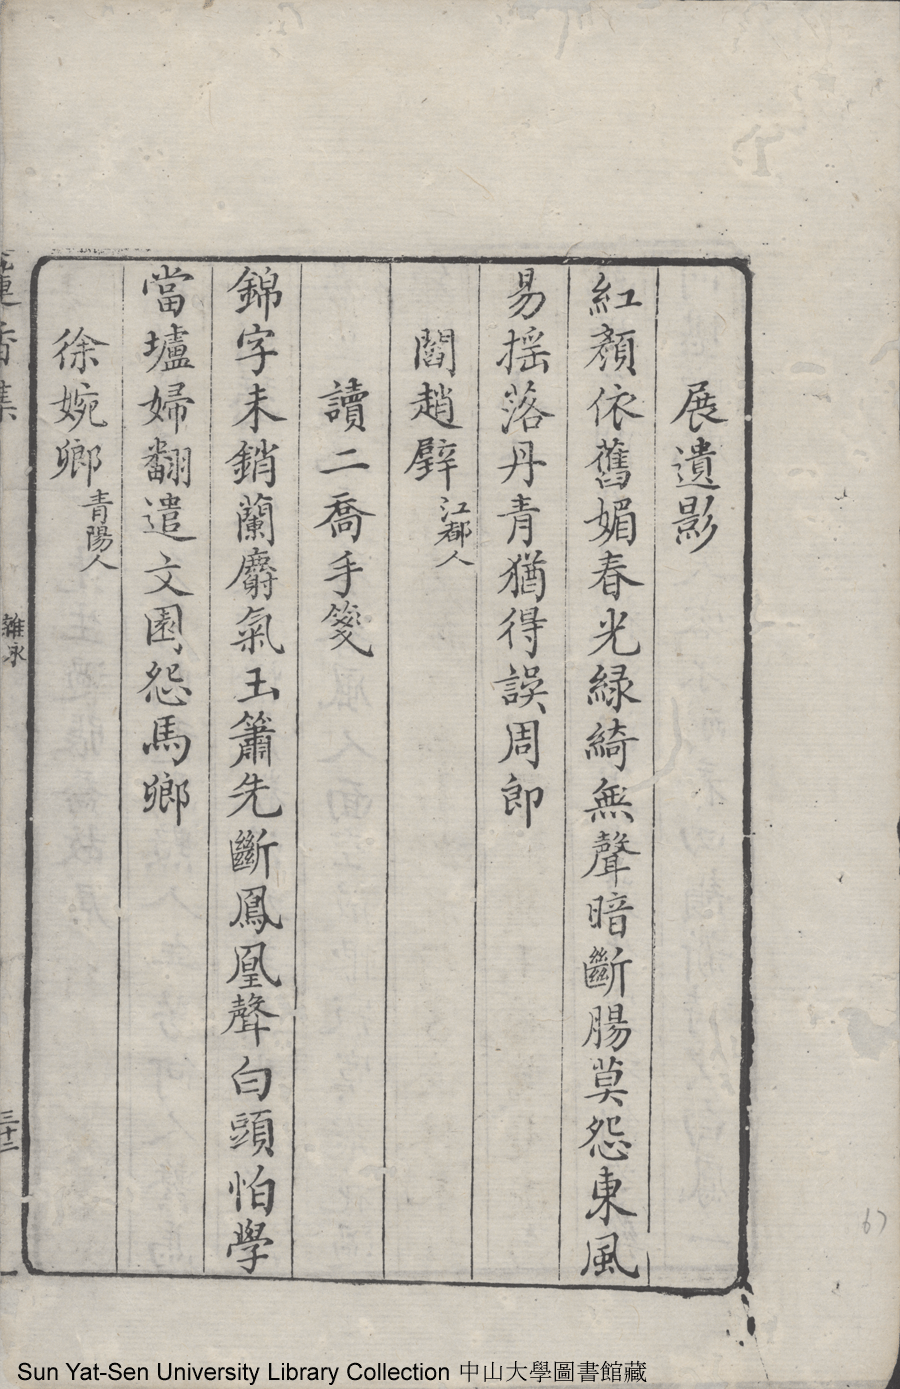 展遺影
紅顏依舊媚春光綠綺無聲暗斷腸莫怨東風
易揺落丹青猶得誤周郎
閻趙璧江都人
讀二喬手箋
錦字未銷蘭麝氣玉簫先斷鳳凰聲白頭怕學
當壚婦翻遣文園怨馬卿
徐婉卿青陽人
蓮香集
雜永
三十二
67
Sun Yat-Sen University Library Collection 中山大學圖書館藏